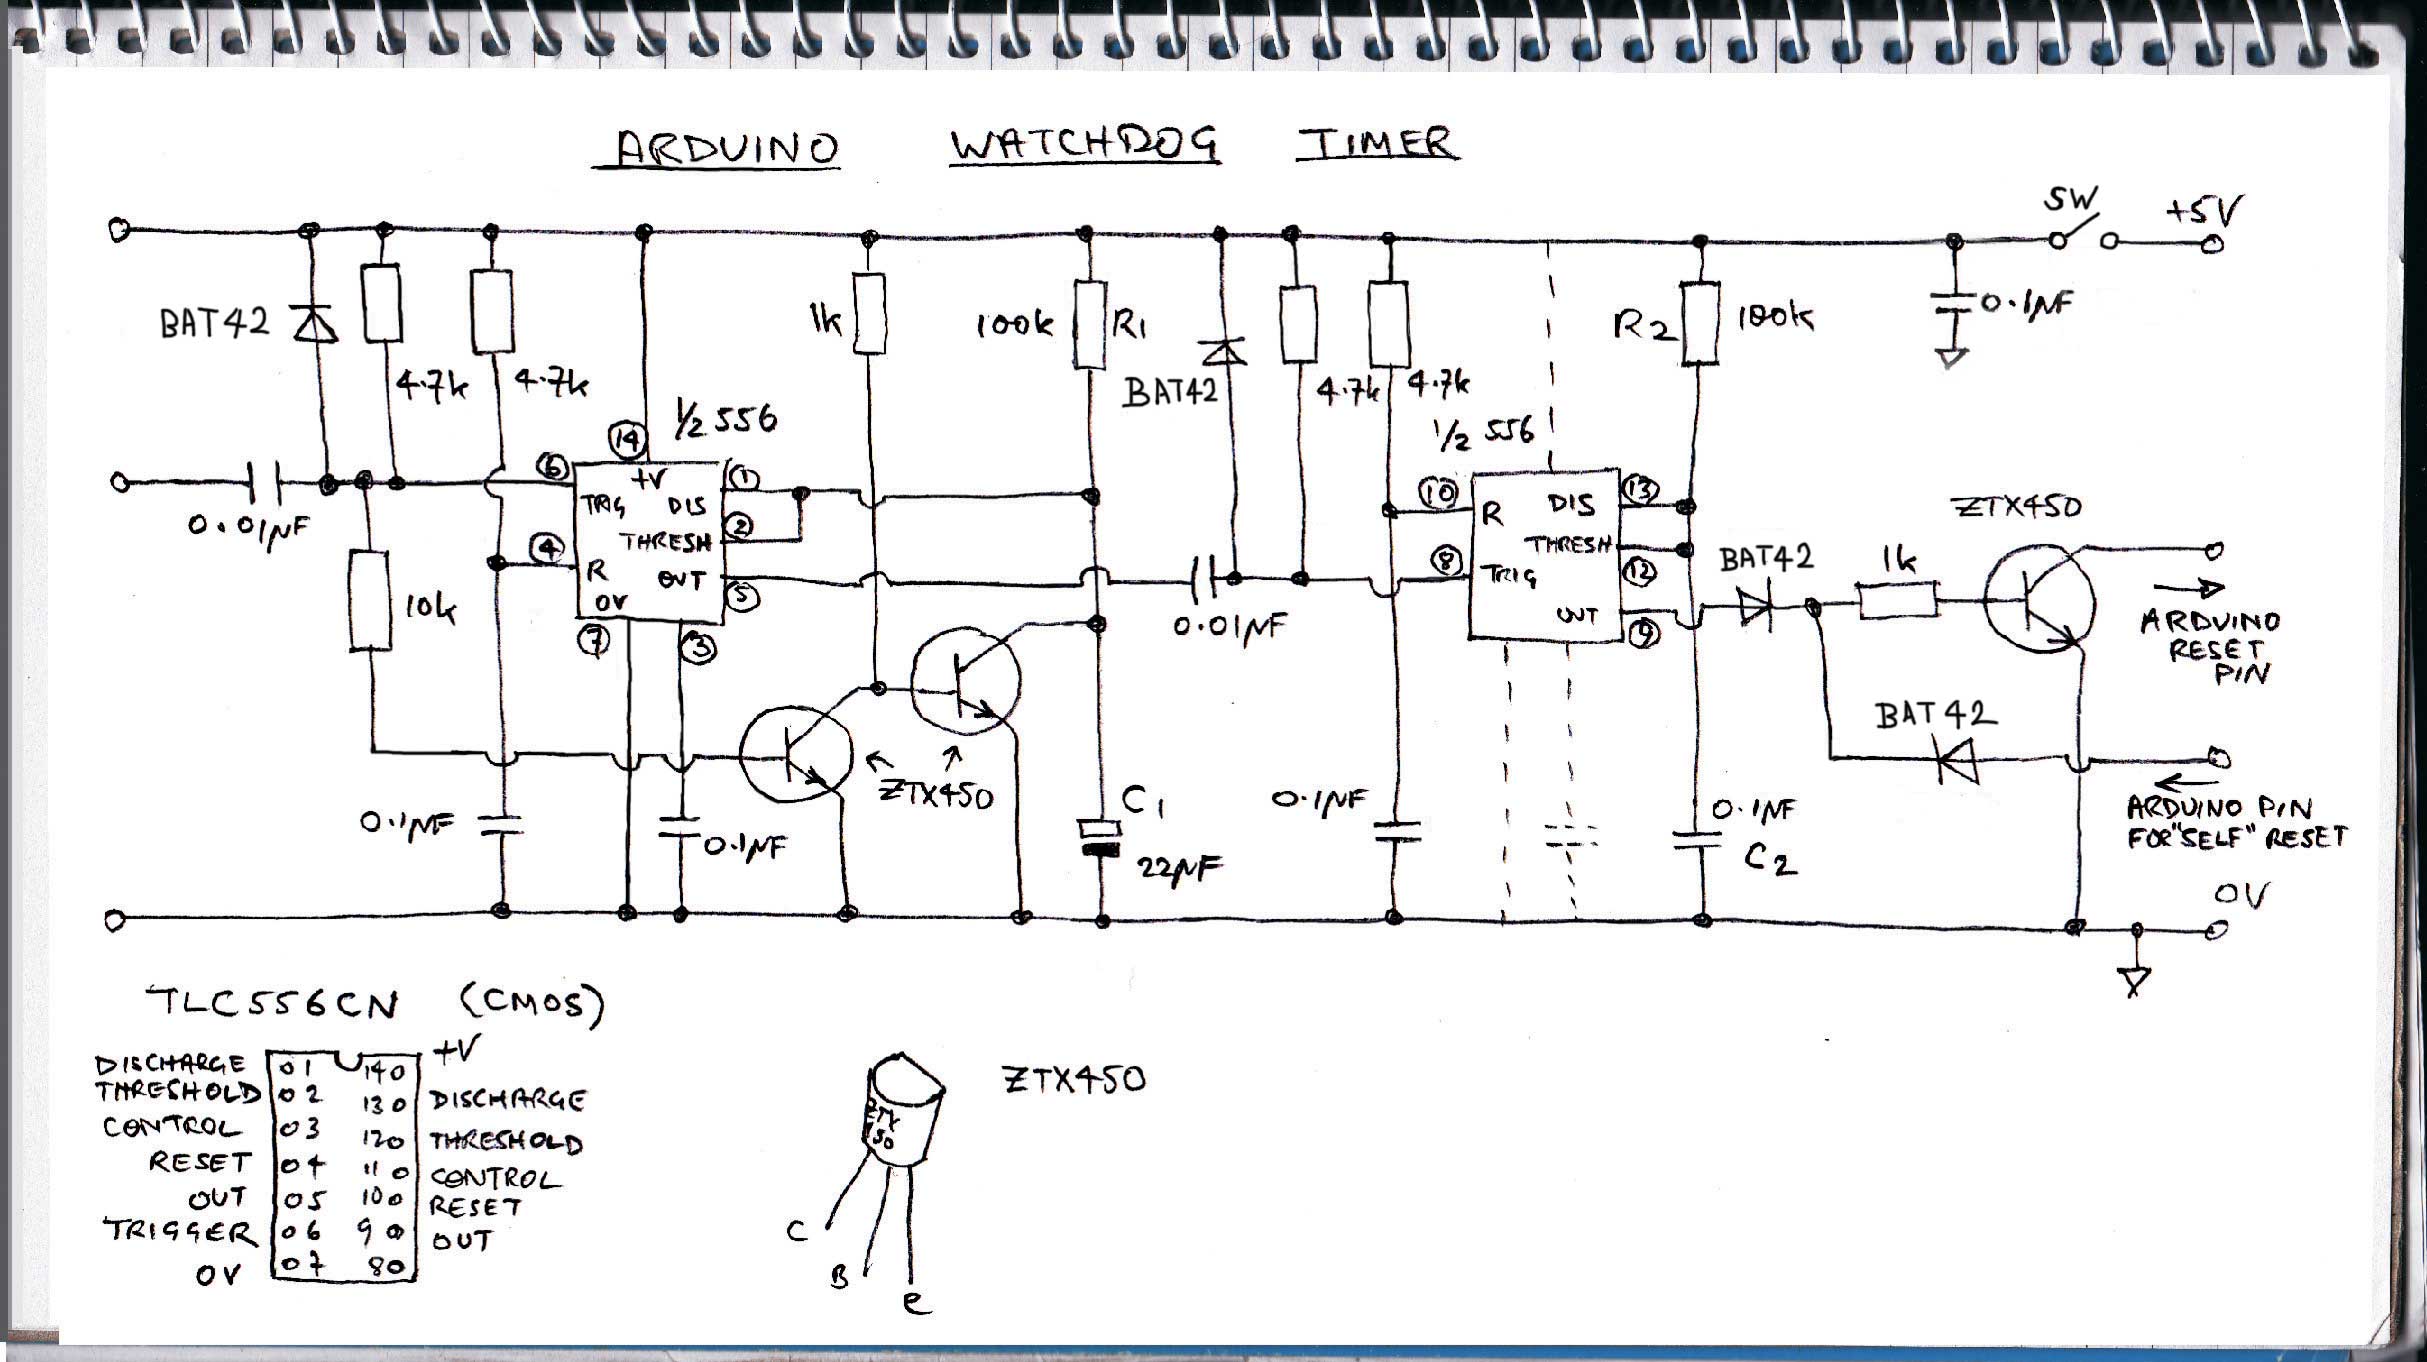 ARDUINO WATCHDOG TIMER
SW
+5V
BAT42
4.7k
4.7k
1k
100k
R1
BAT42
4.7k
4.7k
R2
100k
0.1µF
1/2 556
1/2 556
14
6
+V
1
TRIG
DIS
2
THRESH
4
R
OUT
5
0V
7
3
0.01µF
10k
0.01µF
10
R
DIS
13
THRESH
12
8
TRIG
OUT
9
BAT42
1k
ZTX450
ARDUINO
RESET
PIN
BAT42
ZTX450
0.1µF
0.1µF
C1
22µF
0.1µF
0.1µF
C2
ARDUINO PIN
FOR "SELF" RESET
0V
TLC556CN (CMOS)
+V
DISCHARGE 01 140
THRESHOLD 02 130 DISCHARGE
CONTROL 03 120 THRESHOLD
RESET 04 110 CONTROL
OUT 05 100 RESET
TRIGGER 06 90 OUT
0V 07 80
ZTX450
ZTX
450
C
B
e